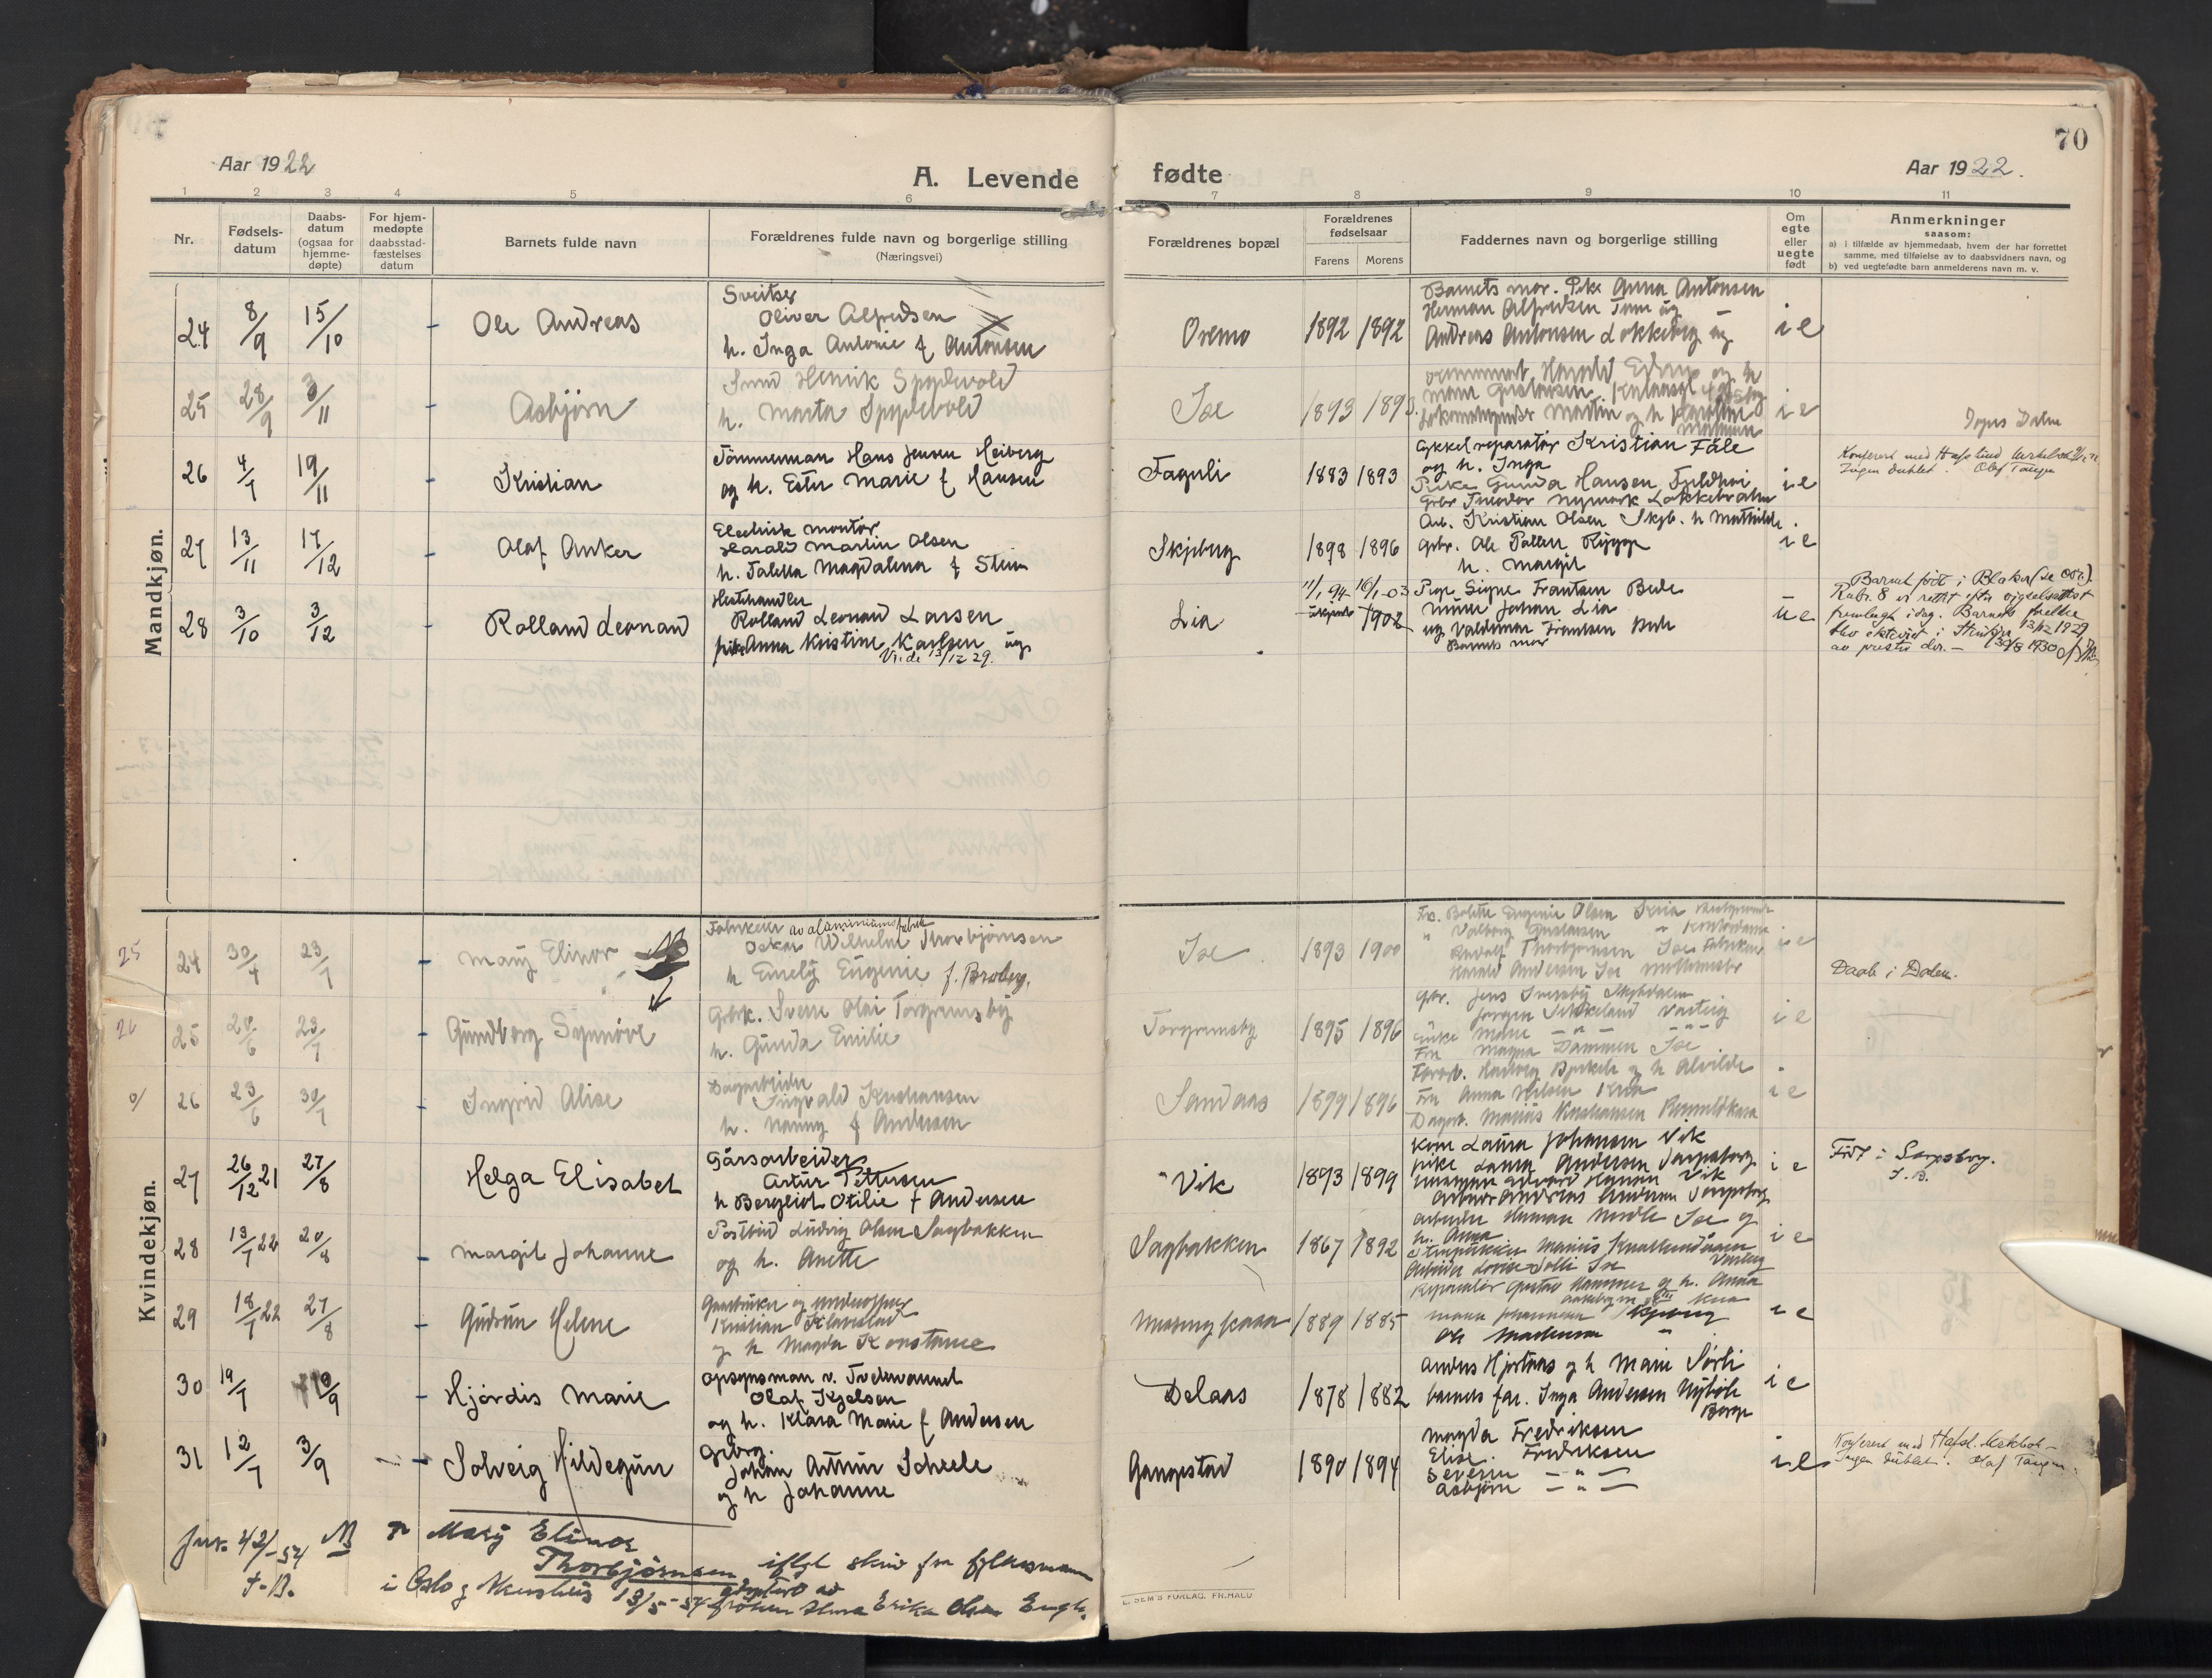 70
Aar 1922
A. Levende
fødte
Aar 1922.
1 2 3 4 5 6 7 8 9 10 11
Nr.
Fødsels-
datum
Daabs-
datum
(ogsaa for
hjemme-
døpte)
For hjem-
medøpte
daabsstad-
fæstelses
datum
Barnets fulde navn
Forældrenes fulde navn og borgerlige stilling
(Næringsvei)
Forældrenes bopæl
Forældrenes
fødselsaar
Farens Morens
Faddernes navn og borgerlige stilling
Om
egte
eller
uegte
født
Anmerkninger
saasom:
a) i tilfælde av hjemmedaab, hvem der har forrettet
samme, med tilføielse av to daabsvidners navn, og
b) ved uegtefødte barn anmelderens navn m. v.
Mandkjøn.
24 8/9 15/10 - Ole Andreas
Sveitser
Oliver Alfredsen
h. Inga Antonie f Antonsen
Oremo 1892 1892
Barnets mor. Pike Anna Antonsen
Herman Alfredsen Tune ug
Andreas Antonsen Løkkeberg ug
i e
25 28/9 3/11 - Asbjørn
Smed Henrik Spydevold
h. Marta Spydevold
Ise 1893 1893.
i e
Døpt Dalen
26 4/7 19/11 - Kristian
Tømmerman Hans Jensen Heiberg
og h. Ester Marie f Hansen
Faguli 1883 1893
Cykkelreparatør Kristian Fåle
og h. Inga
Pike Gunda Hansen
Gbr Theodor Nymark
i e
Konferert med Hafslund kirkebok
Ingen dublet. Olaf Tangen
27 13/11 17/12 - Olaf Anker
Electrisk montør
Harald Martin Olsen
h. Taletta Magdalena f Stein
Skjeberg 1898 1896
Arb. Kristian Olsen Skjb. h Mathilde
Gbr. Ole
h. Margit
i e
28 3/10 3/12 Rolland Leonard
Hestehandler
Rolland Leonard Larsen
pike Anna Kristine Karlsen ug
Vi. de 13/12 29.
Lia 11/1 94 16/1-03
1902
Pige Signe Frantsen Bede
Johan Lia
og Valdemar Frantsen
Barnets mor
u e
Barnet født i Blaker
Rubr. 8 er rettet efter
fremlagt idag. Barnets forældre
blev ekteviet i 13/12 1929
av presten der. - 30/8 1930
Kvindekjøn.
25 24 30/4 23/7 - Mary Elinor NB
Fabrikeier av aluminiumsfabrik
Oskar Wilhelm Thorbjørnsen
h Emely Eugenie f. Broberg.
Ise 1893 1900
Frk. Bolette Eugenie Olsen
" Valborg Gustavsen
Rudolf Thorbjørnsen Ise Fabrikeier
Harald Andersen Ise
i e
Daab i Dalen.
26 25 28/6 23/7 - Gundborg Synnøve
Gbrk. Sverre Olai Torgrimsby
h. Gunda Emilie
Torgrimsby 1895 1896
Gbr. Jens
Jørgen Varteig
Enke Marie - " -
Fru Magna Dammen Ise
i e
26 23/6 30/7 - Ingrid Alise
Dagarbeider
Ingvald Kristiansen
h. Nanny f Andersen
Sandaas 1899 1896
Forarb. Hartvig Bjerkeli og h Alvilde
Fru Anna Nilsen
Dagarb. Marius Kristiansen
i e
27 26/12 21 27/8 Helga Elisabet
Gårsarbeider
Artur Pettersen
h Bergliot Otilie f Andersen
Vik 1893 1899
Kone Laura Johansen Vik
pike Laura Andersen Sarpsborg
Edvard Hansen Vik
Arbeider Andreas Andersen Sarpsborg
i e
Født i Sarpsborg.
28 13/7 22 20/8 - Margit Johanne
Postbud Ludvig Olsen Sagbakken
og h. Anette
Sagbakken 1867 1892
Arbeider Herman Ise og
h. Anna
Arbeider Lovise Solli Ise
i e
29 18/7 22 27/8 - Gudrun Helene
Gaardbruker og underofficer
Kristian Klavestad
og h Magda Konstance
1889 1885
Reparatør Gustav Hammer og h. Anna
Marie Johannesen Skjeberg
Ole Martinsen "
i e
30 19/7 10/9 - Hjørdis Marie
Opsynsman v. Tvetervannet
Olaf Kjelsen
og h. Klara Marie f Andersen
Delaas 1878 1882
Anders Hjortnes og h Marie Sørli
barnets far. Inga Andersen Nybøle
Borge
i e
31 12/7 3/9 - Solveig Hildegun
Grbrg.
Johan Arthur Scheele
og h Johanne
Gangestad 1890 1894
Magda Fredriksen
Elise Fredriksen
Severin - " -
Asbjørn - " -
i e
Konferert med Hafsl. kirkebok -
Ingen dublet. Olaf Tangen.
Jnr. 42/-54 NB
Mary Elinor
Thorbjørnsen ifølge skriv fra fylkesmann
i Oslo og Akershus 13/5-54 adoptert av
frøken Alma Erika Olsen Engh.
E. SEM'S FORLAG. FR.HALD